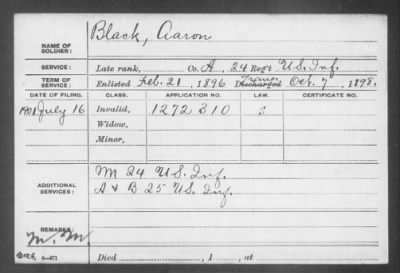 Black, Aaron
NAME OF SOLDIER:
SERVICE: Late rank, Co. A, 24 Reg't U.S. Inf.
TERM OF SERVICE: Enlisted Feb. 21, 1896 Trans. Discharged Oct. 7, 1898.
DATE OF FILING. CLASS. APPLICATION NO. LAW. CERTIFICATE NO.
1901 July 16 Invalid, 1272310
Widow,
Minor,
M 24 U.S. Inf.
ADDITIONAL SERVICES: A & B 25 U.S. Inf.
REMARKS:
Died , 1 , at